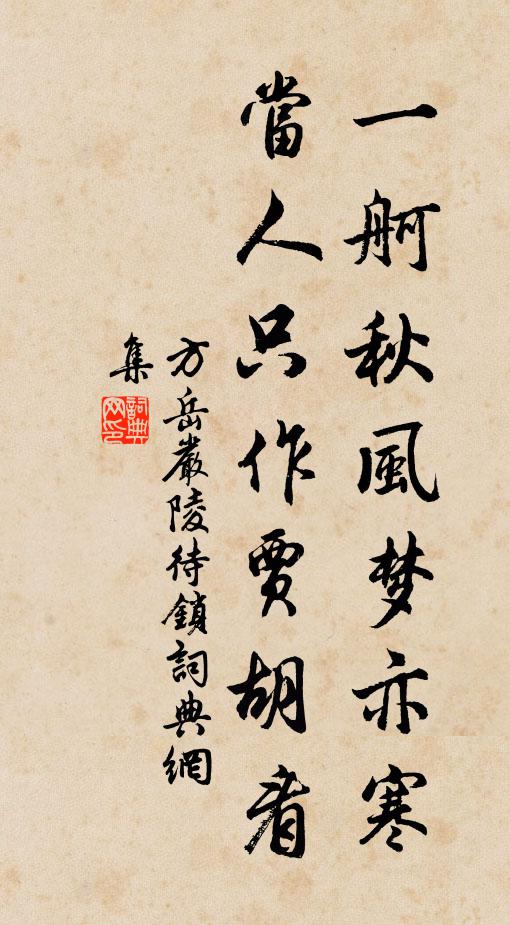 一舸秋風梦亦寒
當人只作賈胡看
方岳嚴陵待鎖詞典網
集
詞典網印